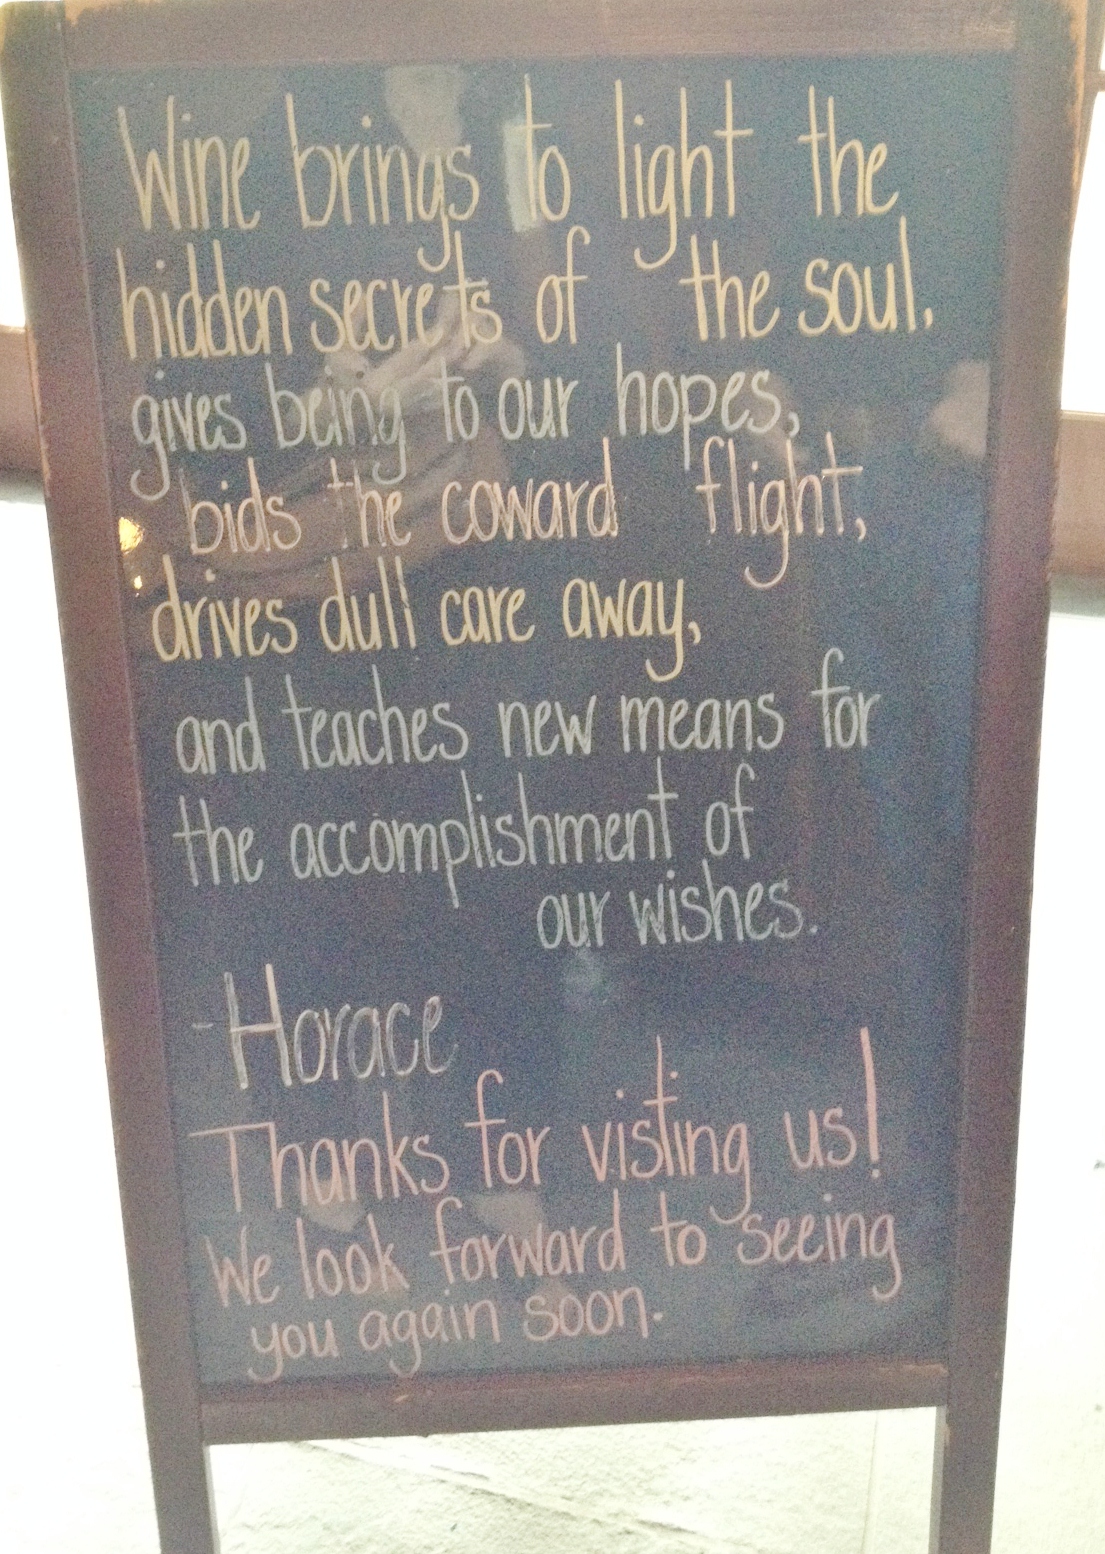 Wine brings to light the
hidden secrets of the soul.
gives being to our hopes,
bids the coward flight,
drives dull care away,
and teaches new means for
the accomplishment of
our wishes.
-Horace
Thanks for visting us!
We look forward to seeing
you again soon.